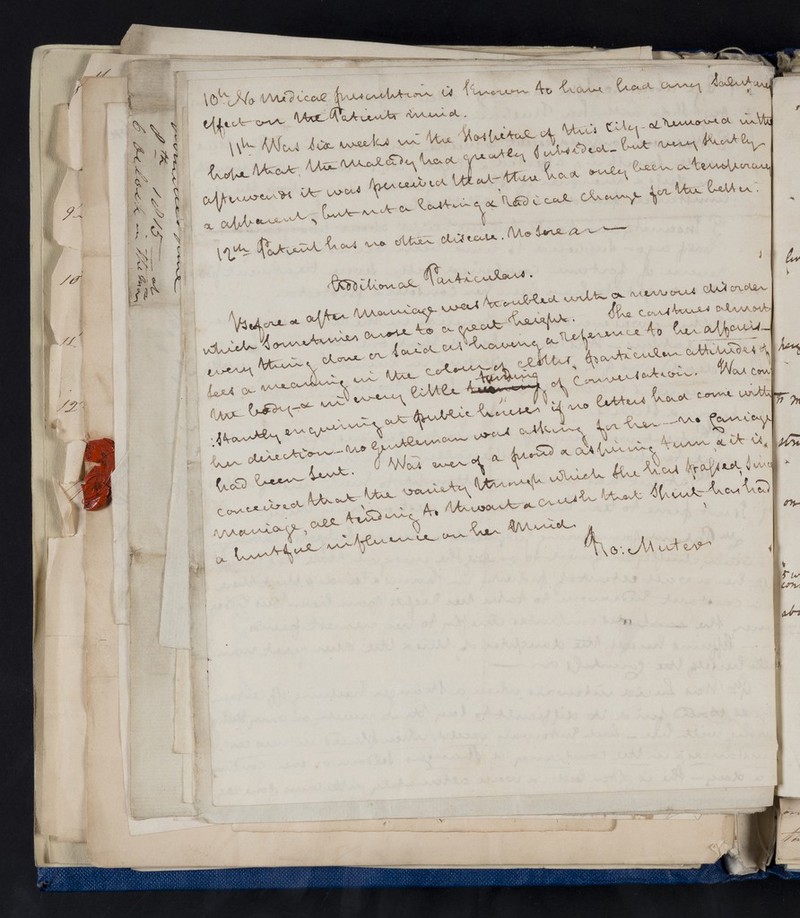 10th No medical prescription is known to have had any Salutary
effect on the Patients mind.
11th Was Six weeks in the Hospital of this City - & removed in the
hope that the Malady had greatly Subsided - but very Shortly
afterwards it was perceived that there had only been a temporary
& apparent, but not a lasting & Radical change for the better.
12th Patient has no other disease. No Sore
Additional Particulars.
Before & after Marriage was troubled with a nervous disorder
which Sometimes arose to a great height. She construes almost
every thing done or Said as having a reference to her affairs -
Sees a meaning in the colour of clothes, particular attitudes of
the body - & in every little turning of Conversation. Was con
:Stantly enquiring at public houses if no letters had come with
her direction - no Gentleman was asking for her - no Carriage
had been Sent. Was ever of a proud & aspiring turn, & it is
conceived that the variety through which She has passed, Since
Marriage, all tending to thwart & crush that Spirit, has had
a hurtful influence on her Mind.
Ro: Muter
8th 1815 - at
6 oClock in
9
10
11
12